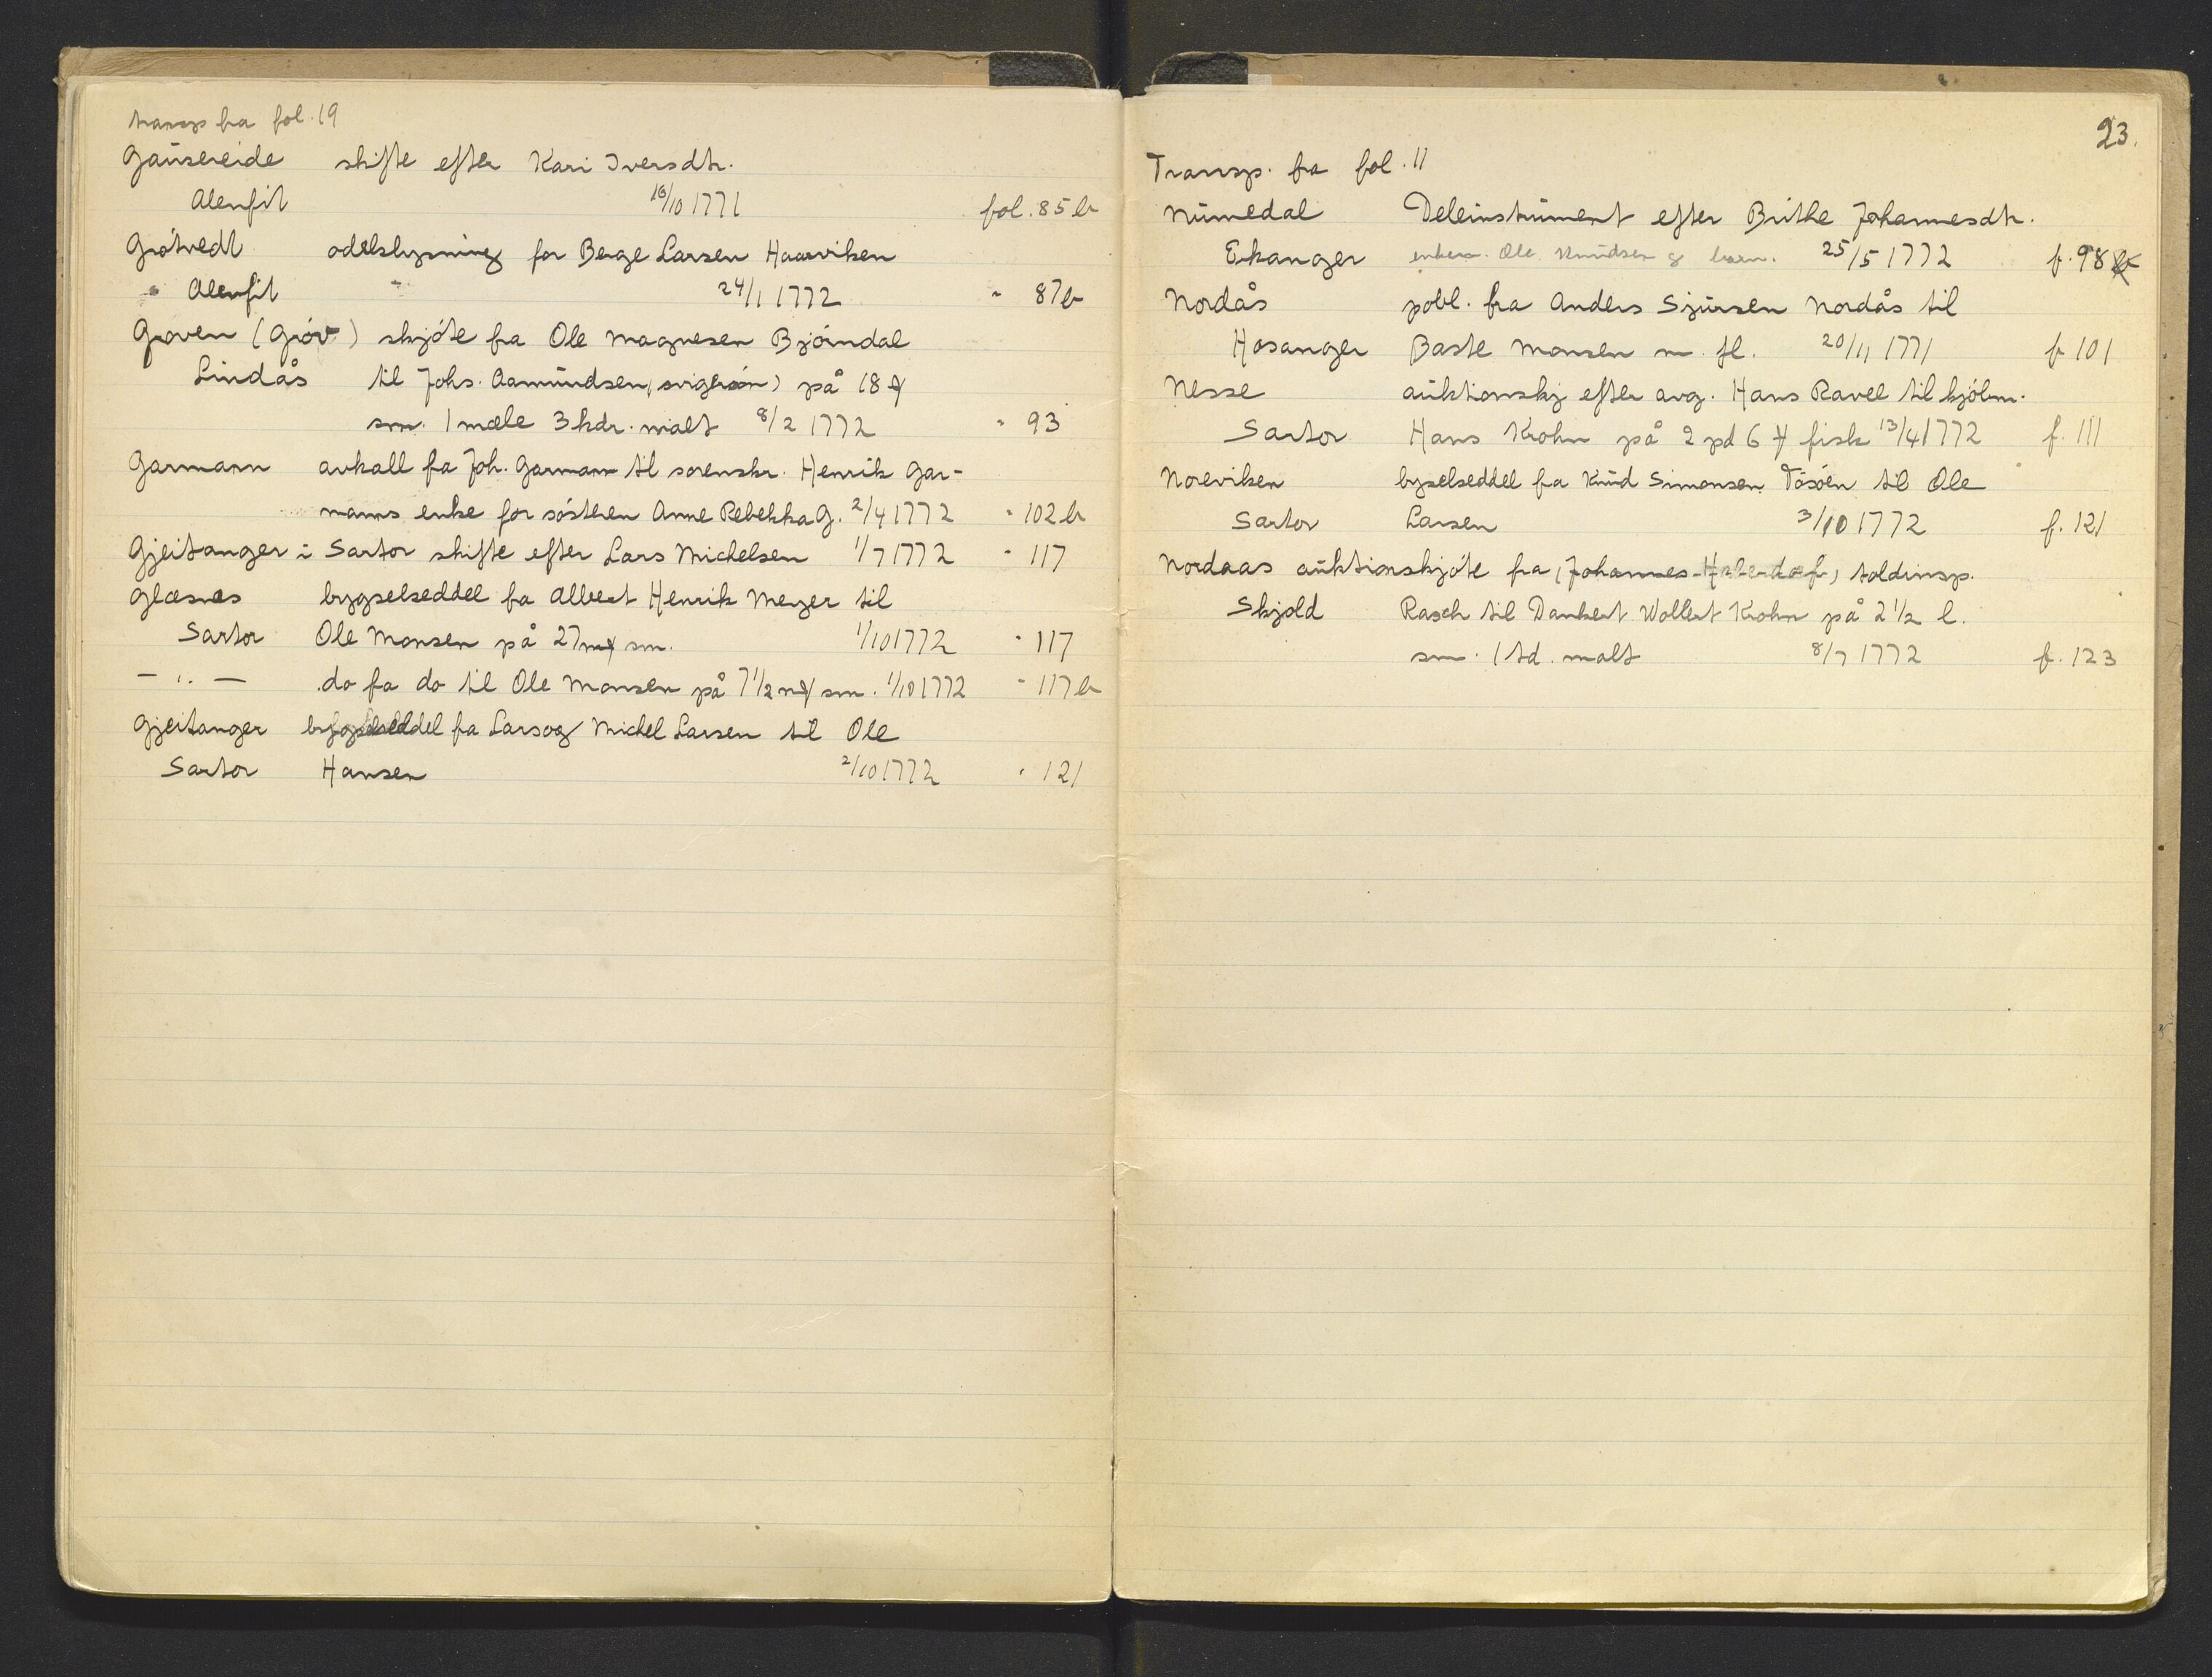 transp fra fol. 19
Gausereide skifte efter Kari Iversdtr.
Alenfit 18/10 1771 fol. 85 b
Grótvedt odelslysning for Berge Larsen Haarviken
" Alenfit " 24/1 1772 " 87 b
Groven (Gróv) skjóte fra Ole Magnesen Bjórndal
Lindås til Johs. Aamundsen, (svigersón) på 18
sm. 1 mæle 3 kdr. malt 8/2 1772 " 93
Garmann avkall fra Joh. Garmann til sorenskr. Henrik Gar-
manns enke for sósteren Anne Rebekka G. 2/4 1772 " 102 b
Gjeitanger i Sartor skifte efter Lars Michelsen 1/7 1772 " 117
Glæsnes bygselseddel fra Albert Henrik Meyer til
Sartor Ole Monsen på 27 sm. 1/10 1772 " 117
— " — do fra do til Ole Monsen på 7 1/2 sm. 1/10 1772 " 117 b
Gjeitanger bygselseddel fra Lars og Michel Larsen til Ole
Sartor Hansen 2/10 1772 " 121
23.
Transp. fra fol. 11
Numedal Deleinstrument efter Brithe Johannesdtr.
Eikanger enkem. Ole Knudsen & barn. 25/5 1772 f. 98
Nordås pobl. fra Anders Sjursen Nordås til
Hosanger Baste Monsen m. fl. 20/11 1771 f. 101
Nesse auktionskj efter avg. Hans Ravel til kjóbm.
Sartor Hans Krohn på 2 pd 6 fisk 13/4 1772 f. 111
Noreviken bygselseddel fra Knud Simonsen Tósóen til Ole
Sartor Larsen 3/10 1772 f. 121
Nordaas auktionskjóte fra (Johannes Haberdorf) toldinsp.
Skjold Rasch til Dankert Wollert Krohn på 2 1/2 l.
sm. 1 td. malt 8/7 1772 f. 123